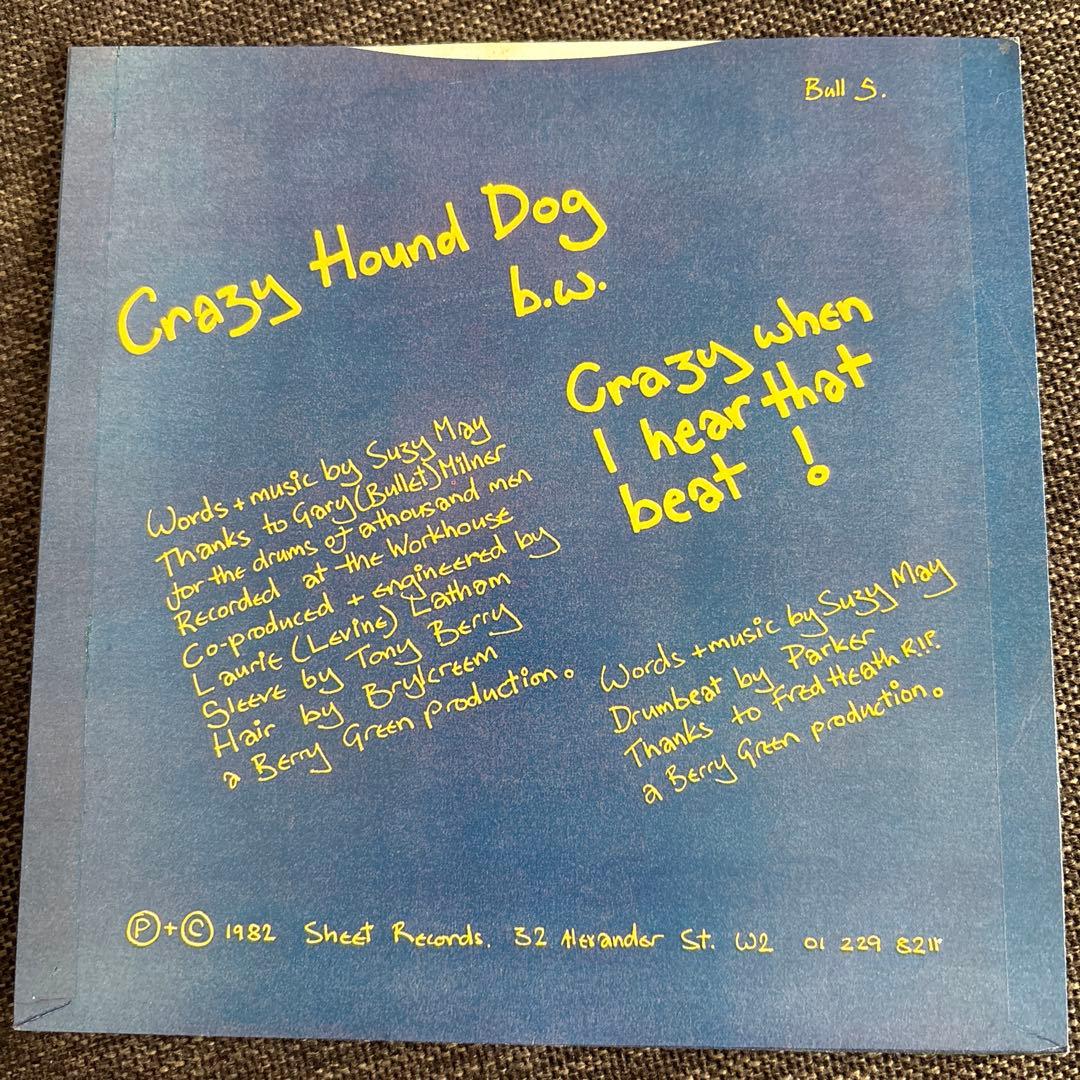 Bull S.
Crazy Hound Dog
b.w.
Crazy when
I hear that
beat !
Words + music by Suzy May
Thanks to Gary (Bullet) Milner
for the drums of a thousand men
Recorded at the Workhouse
Co-produced + engineered by
Laurie (Levine) Lathom
Sleeve by Tony Berry
Hair by Brylcreem
a Berry Green production.
Words + music by Suzy May
Drumbeat by Parker
Thanks to Fred Heath R.I.P.
a Berry Green production.
Ⓟ + © 1982 Sheet Records. 32 Alexander St. W2 01 229